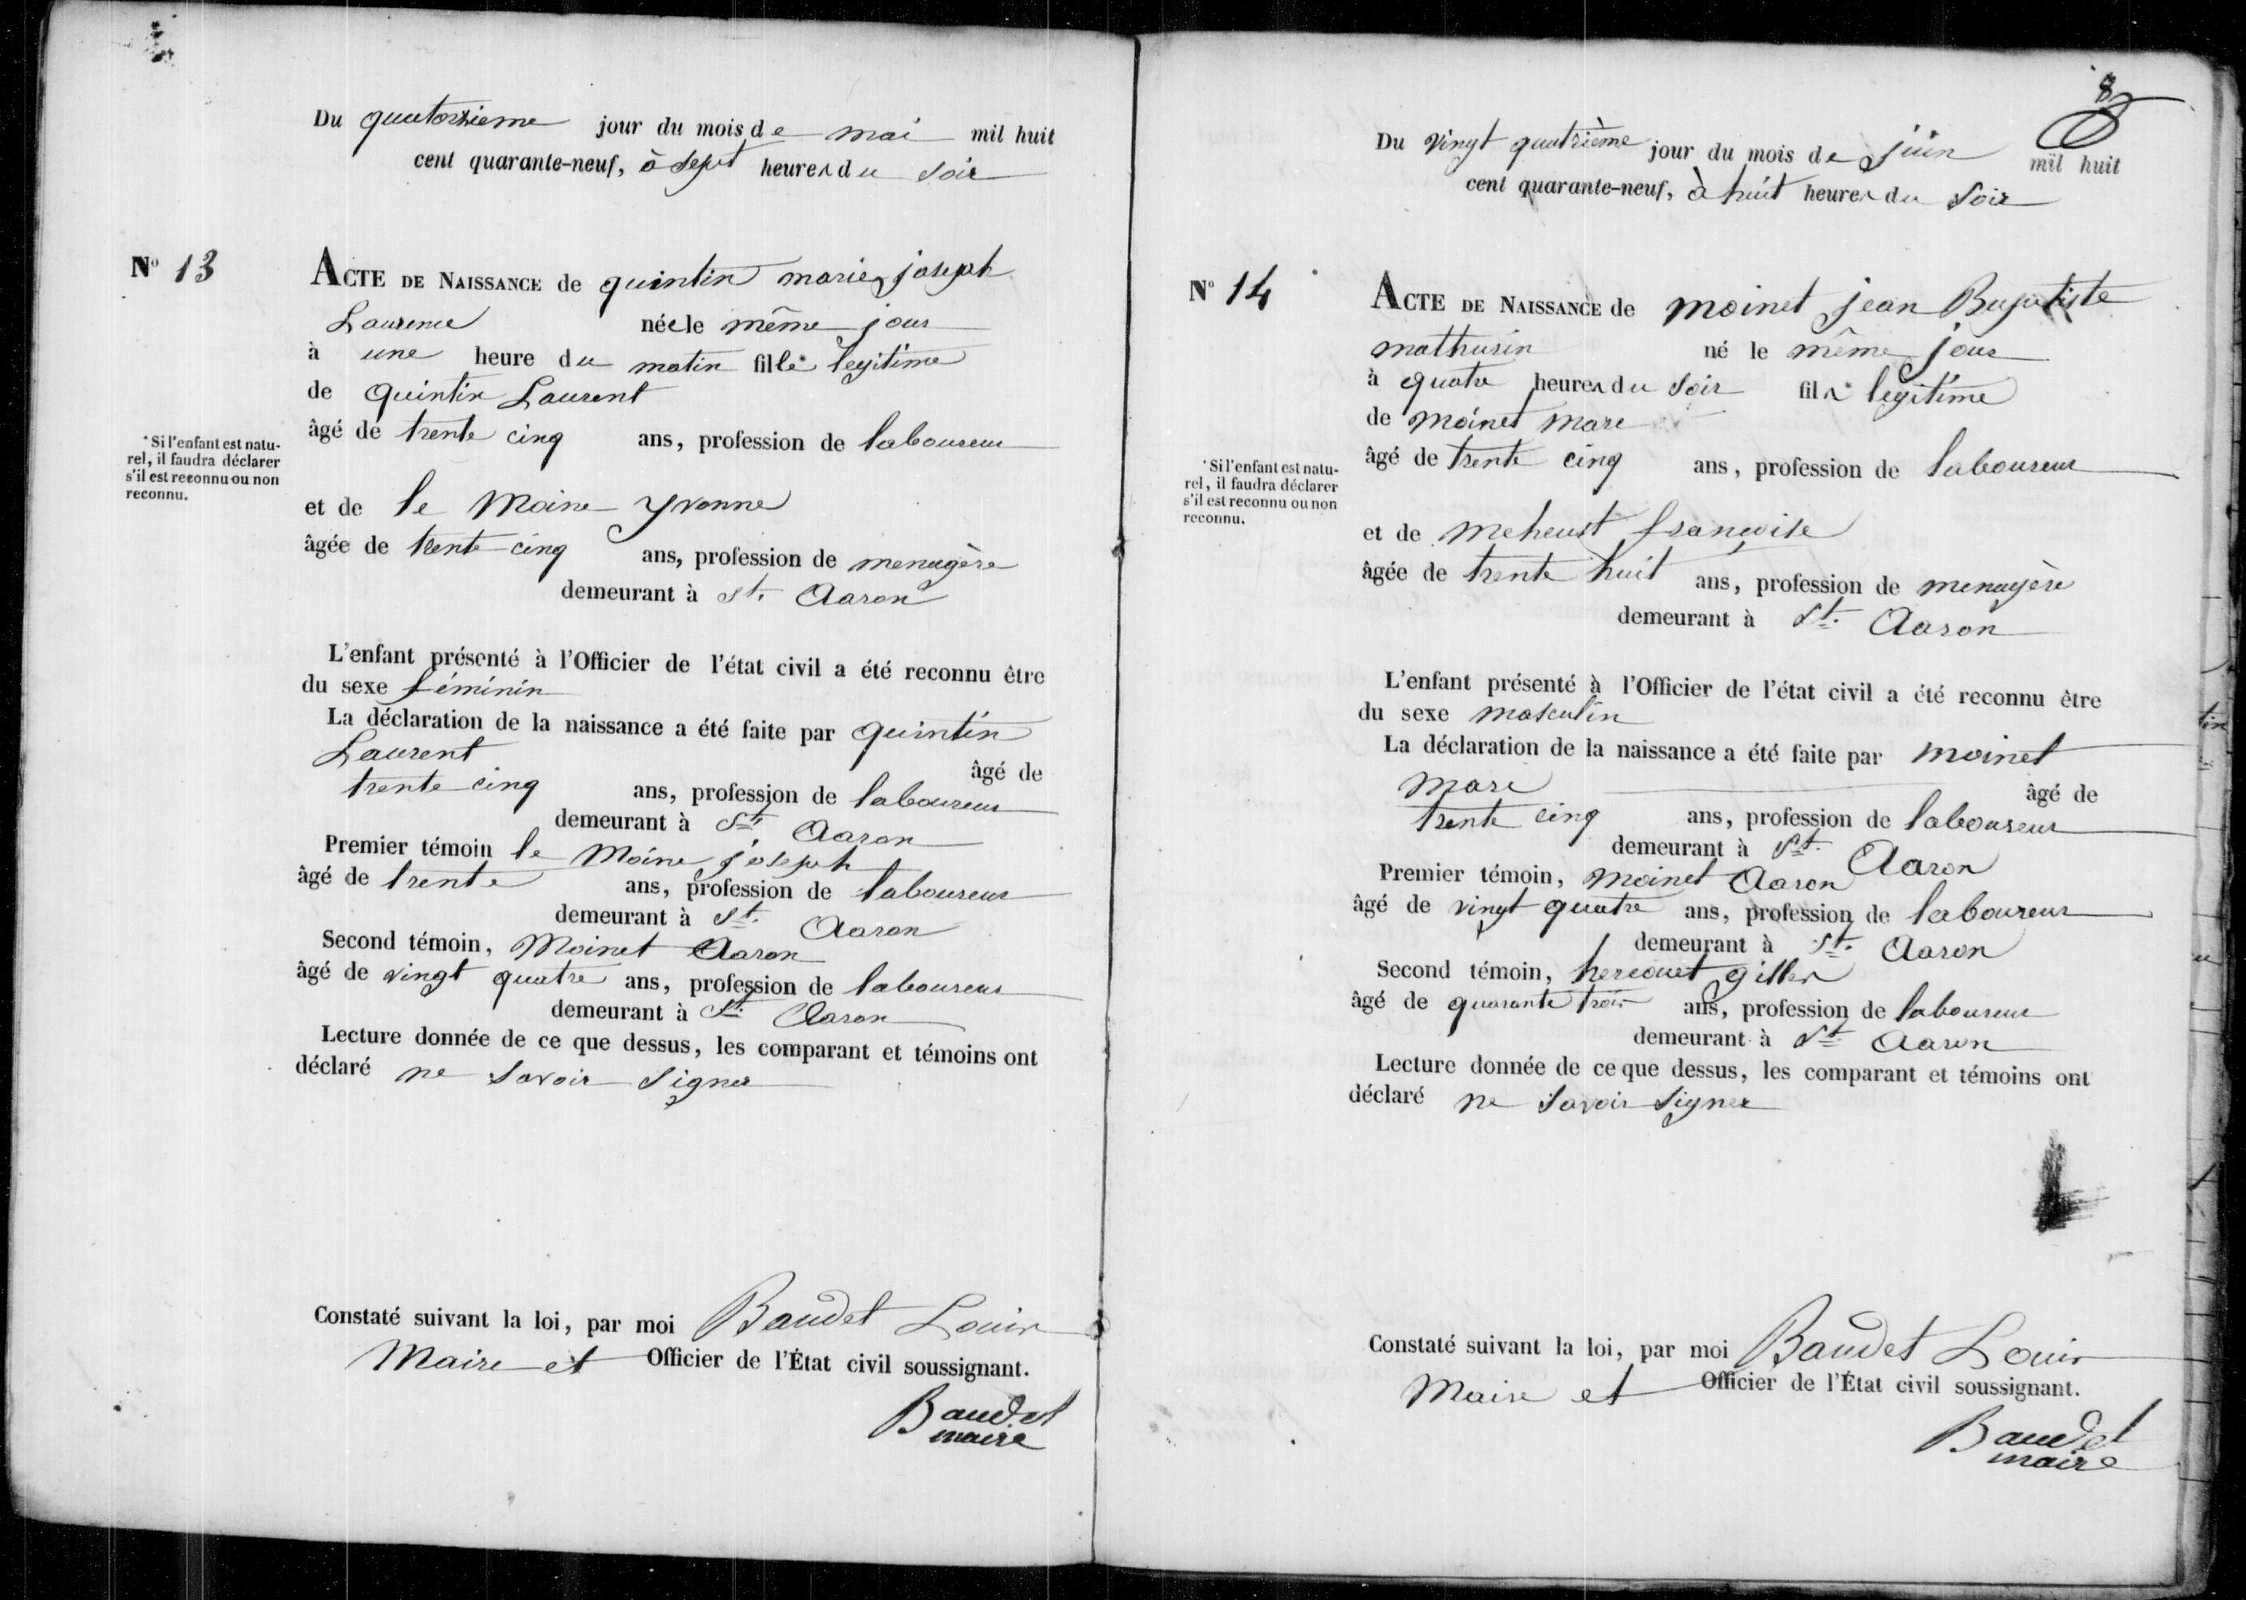 Du quatorzieme jour du mois de mai mil huit
cent quarante-neuf, à sept heures du soir
N° 13
ACTE DE NAISSANCE de quintin marie joseph
Laurence née le même jour
à une heure du matin fille * legitime
de quintin Laurent
âgé de trente cinq ans, profession de laboureur
* Si l'enfant est natu-
rel, il faudra déclarer
s'il est reconnu ou non
reconnu.
et de le Moine yvonne
âgée de trente cinq ans, profession de menagère
demeurant à St. Aaron
L'enfant présenté à l'Officier de l'état civil a été reconnu être
du sexe féminin
La déclaration de la naissance a été faite par quintin
Laurent âgé de
trente cinq ans, profession de laboureur
demeurant à St. Aaron
Premier témoin le Moine joseph
âgé de trente ans, profession de laboureur
demeurant à St. Aaron
Second témoin, Moinet Aaron
âgé de vingt quatre ans, profession de laboureur
demeurant à St. Aaron
Lecture donnée de ce que dessus, les comparant et témoins ont
déclaré ne savoir signer
Constaté suivant la loi, par moi Baudet Louis
Maire et Officier de l'État civil soussignant.
Baudet
maire
8
Du vingt quatrième jour du mois de juin mil huit
cent quarante-neuf, à huit heures du soir
N° 14
ACTE DE NAISSANCE de moinet jean Baptiste
mathurin né le même jour
à quatre heures du soir fils * legitime
de moinet marc
âgé de trente cinq ans, profession de laboureur
* Si l'enfant est natu-
rel, il faudra déclarer
s'il est reconnu ou non
reconnu.
et de meheust françoise
âgée de trente huit ans, profession de menagère
demeurant à St. Aaron
L'enfant présenté à l'Officier de l'état civil a été reconnu être
du sexe masculin
La déclaration de la naissance a été faite par moinet
marc âgé de
trente cinq ans, profession de laboureur
demeurant à St. Aaron
Premier témoin, moinet Aaron
âgé de vingt quatre ans, profession de laboureur
demeurant à St. Aaron
Second témoin, hercouet gilles
âgé de quarante trois ans, profession de laboureur
demeurant à St. Aaron
Lecture donnée de ce que dessus, les comparant et témoins ont
déclaré ne savoir signer
Constaté suivant la loi, par moi Baudet Louis
Maire et Officier de l'État civil soussignant.
Baudet
maire